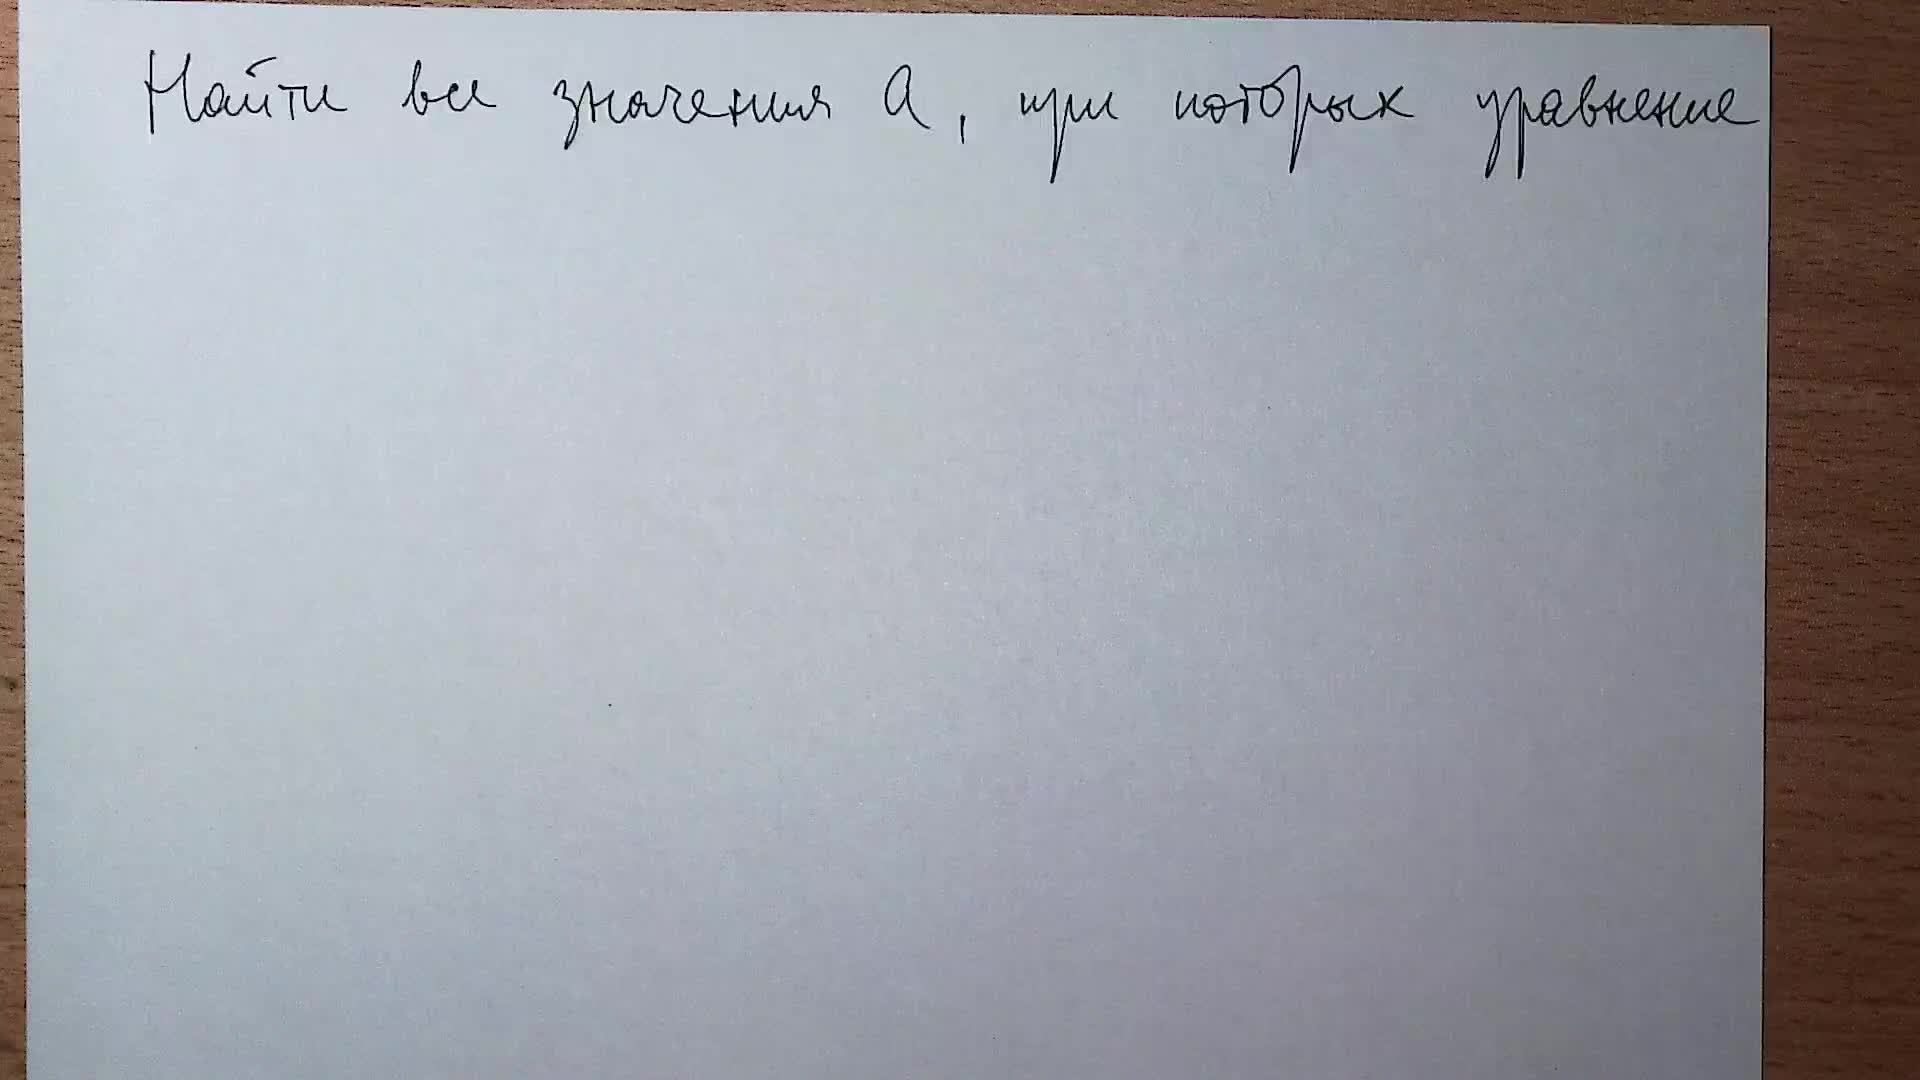 Найти все значения a, при которых уравнение